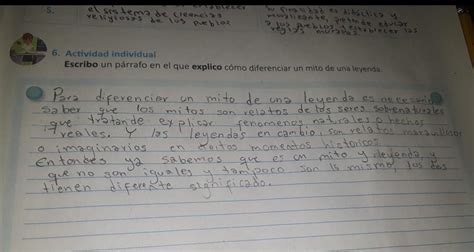 5.
el sistema de creencias
religiosas de los pueblos
su finalidad es didáctica y
6. Actividad individual
Escribo un párrafo en el que explico cómo diferenciar un mito de una leyenda.
Para diferenciar un mito de una leyenda es necesario
saber que los mitos son relatos de los seres sobrenaturales
que tratan de explicar fenomenos naturales o hechos
irreales. Y las leyendas en cambio son relatos maravillosos
o imaginarios en ciertos momentos historicos
Entonces ya sabemos que es un mito y leyenda, y
que no son iguales y tampoco son lo mismo, los dos
tienen diferente significado.